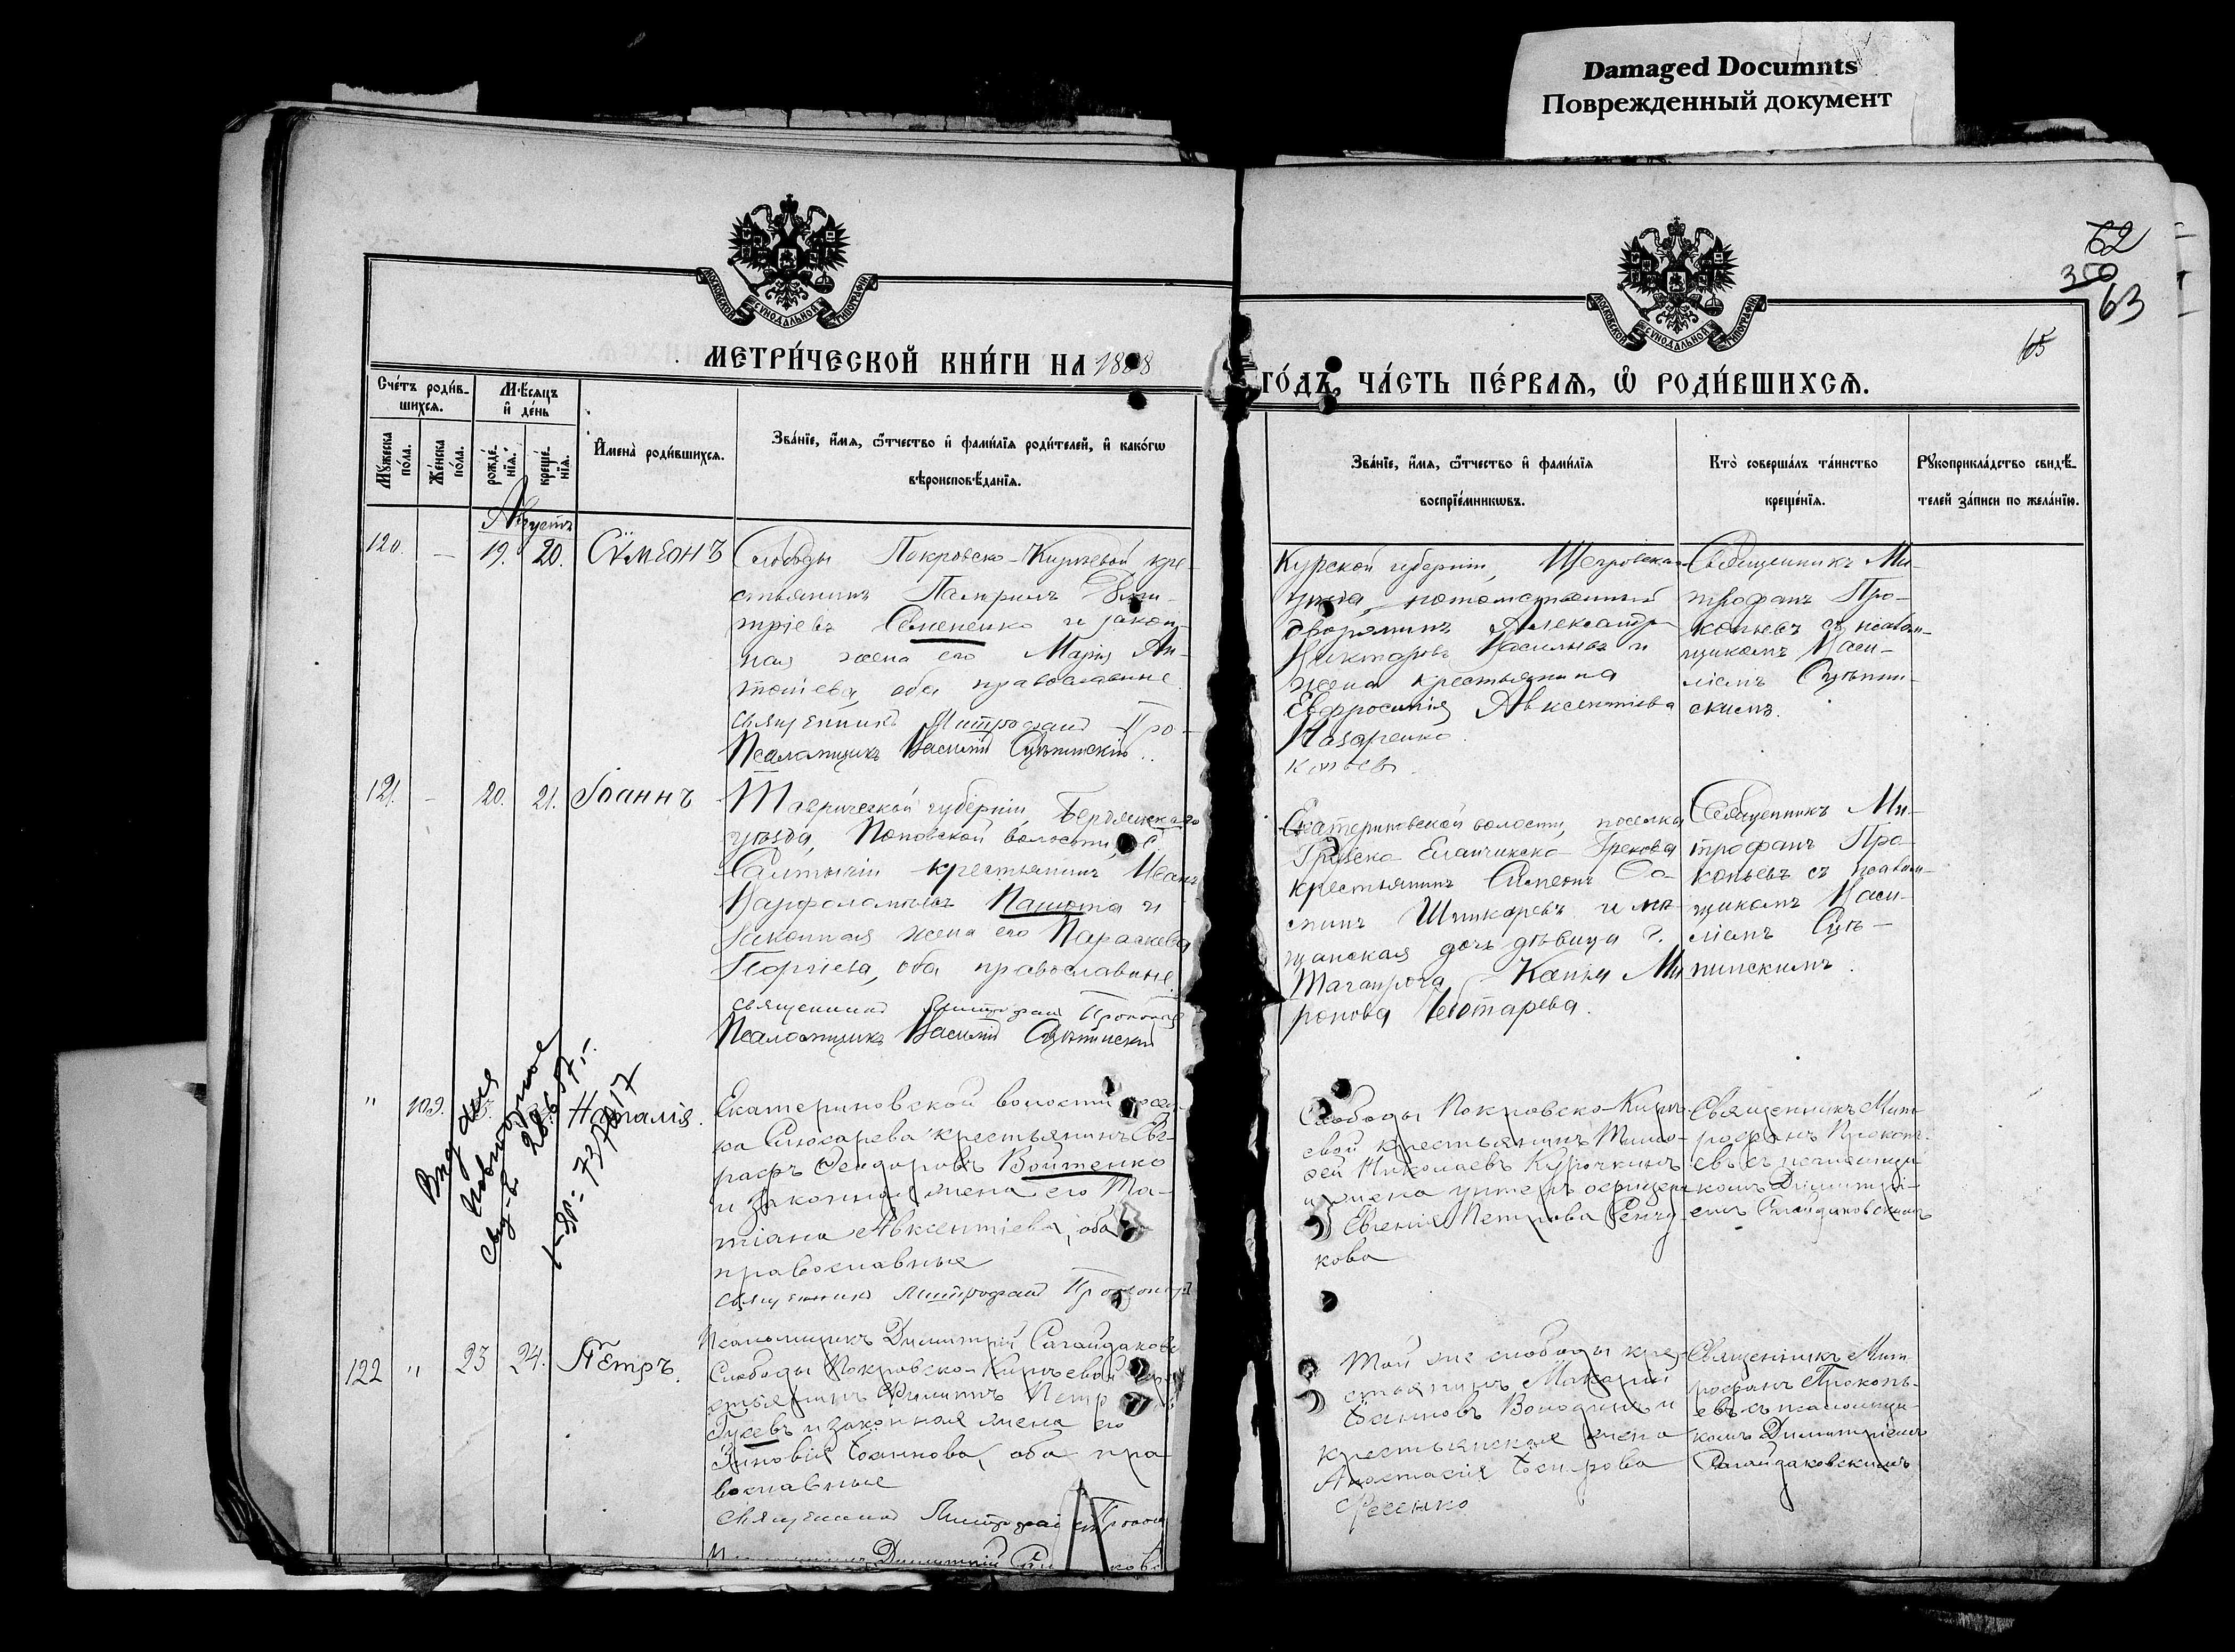 Damaged Documnts
Поврежденный документ
62
350
63
65
МОСКОВСКОЙ СѴНОДАЛЬНОЙ ТИПОГРАФІИ
МОСКОВСКОЙ СѴНОДАЛЬНОЙ ТИПОГРАФІИ
МЕТРИ́ЧЕСКОЙ КНИ́ГИ НА 1898
ГО́ДЪ, ЧА́СТЬ ПЕ́РВАѦ, Ѡ҆ РОДИ́ВШИХСѦ.
Сче́тъ роди́в-
шихсѧ.
Мꙋ́жеска по́ла.
Же́нска по́ла.
Мѣ́сѧцъ
и҆ де́нь
рожде́-
нїѧ.
креще́-
нїѧ.
И҆мена̀ роди́вшихсѧ.
Зва́нїе, и҆́мѧ, ѻ҆́тчество и҆ фами́лїѧ роди́телей, и҆ како́гѡ
вѣроисповѣ́данїѧ.
Зва́нїе, и҆́мѧ, ѻ҆́тчество и҆ фами́лїѧ
воспрїе́мникѡвъ.
Кто̀ соверша́лъ та́инство
креще́нїѧ.
Рꙋкоприкла́дство свидѣ́-
телей за́писи по жела́нїю.
Августъ
120. — 19. 20. Сѵмеонъ
Слободы Покровско-Кирѣевой кре-
стьянинъ Памфилъ Дими-
тріевъ Семененко и закон-
ная жена его Марія Ан-
тоніева, оба православные
Священникъ Митрофанъ Про-
Псаломщикъ Василій
Курской губерніи, Щегровскаго
уѣзда, потомственный
дворянинъ Александръ
Викторовъ Васильевъ и
жена крестьянина
Евфросинія Авксентіева
Назаренко
копьевъ.
Священникъ Ми-
трофанъ Про-
копьевъ съ псалом-
щикомъ Васи-
ліемъ
скимъ.
121. — 20. 21. Іоаннъ
Таврической губерніи, Бердянскаго
уѣзда, Поповской волости, с.
Салтычіи крестьянинъ Иванъ
Варфоломѣевъ и
законная жена его Параскева
Георгіева, оба православные.
Священникъ Митрофанъ Прокопьевъ
Псаломщикъ Василій
Екатериновской волости, поселка
Грузско Еланчикско Грекова
крестьянинъ Симеонъ Со-
Шинкаревъ и мѣ-
щанская дочь дѣвица г.
Таганрога Ксенія Ми
ронова Чеботарева.
Священникъ Ми-
трофанъ Про-
копьевъ съ псалом-
щикомъ Васи-
ліемъ
пинскимъ.
" 109. Наталія.
Выдано
повторное
св-во 28.6.57 г.
Екатериновской волости посел-
ка Слюсарева крестьянинъ Ев-
графъ Ѳеодоровъ Войтенко
и законная жена его Та-
тіана Авксентіева, оба
православные
Священникъ Митрофанъ Прокопьев
Псаломщикъ Димитрій Сагайдаковс
Слободы Покровско-Кирѣ-
евой крестьянинъ Тимо-
ѳей Николаевъ Курочкинъ
и жена унтеръ офицера
Евгенія Петрова
кова
Священникъ Мит-
рофанъ Прокопь-
евъ съ псаломщи-
комъ Димитрі-
емъ Сагайдаковскимъ
122 " 23 24. Петръ.
Слободы Покровско-Кирѣевой кре
стьянинъ Филиппъ Петр
Гусевъ и законная жена его
Зиновія Іоаннова, оба пра
вославные
Священникъ Митрофанъ Прокоп
Димитрій
Той же слободы кре-
стьянинъ Макарій
Іоанновъ Володинъ и
крестьянская жена
Анастасія
Фесенко
Священникъ Мит-
рофанъ Прокопь-
евъ съ псаломщи-
комъ Димитріемъ
Сагайдаковскимъ